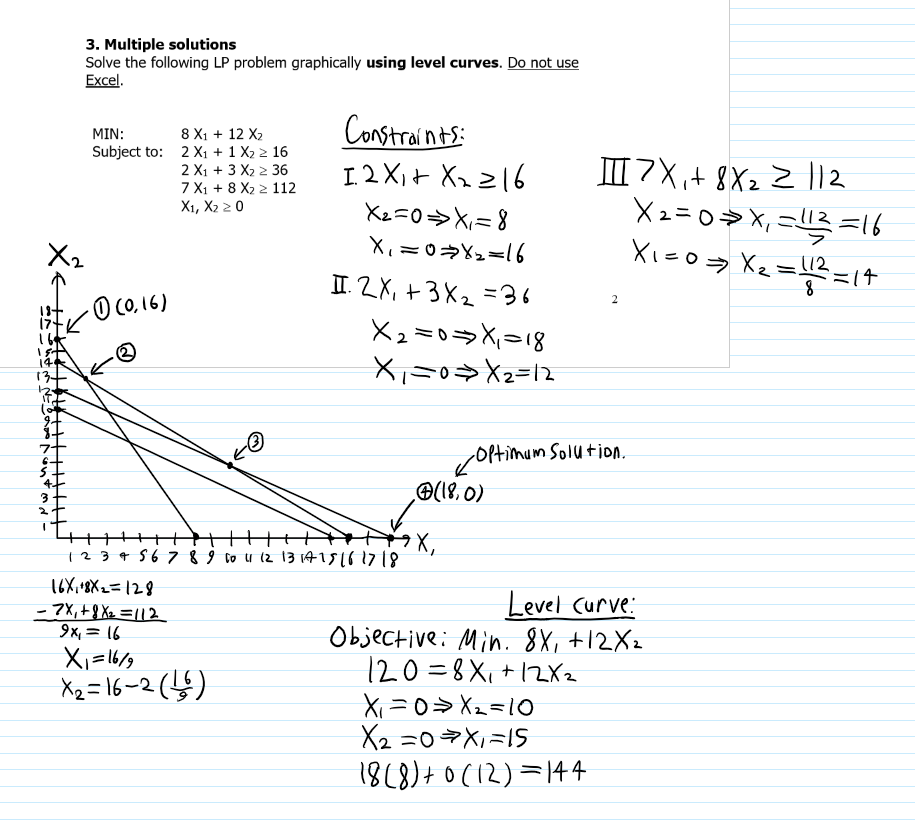 3. Multiple solutions
Solve the following LP problem graphically using level curves. Do not use
Excel.
MIN: 8 X₁ + 12 X₂
Subject to: 2 X₁ + 1 X₂ ≥ 16
2 X₁ + 3 X₂ ≥ 36
7 X₁ + 8 X₂ ≥ 112
X₁, X₂ ≥ 0
Constraints:
I. 2X₁ + X₂ ≥ 16
X₂=0 ⇒ X₁=8
X₁=0 ⇒ X₂=16
II. 2X₁ + 3X₂ = 36
X₂=0 ⇒ X₁=18
X₁=0 ⇒ X₂=12
III 7X₁ + 8X₂ ≥ 112
X₂=0 ⇒ X₁ = 112/7 = 16
X₁=0 ⇒ X₂ = 112/8 = 14
2
X₂
① (0,16)
②
③
Optimum Solution.
④ (18,0)
18
17
16
15
14
13
12
11
10
9
8
7
6
5
4
3
2
1
1 2 3 4 5 6 7 8 9 10 11 12 13 14 15 16 17 18
X₁
16X₁+8X₂=128
- 7X₁+8X₂=112
9X₁ = 16
X₁=16/9
X₂=16-2(16/9)
Level curve:
Objective: Min. 8X₁ + 12X₂
120 = 8X₁ + 12X₂
X₁=0 ⇒ X₂=10
X₂=0 ⇒ X₁=15
18(8)+0(12)=144